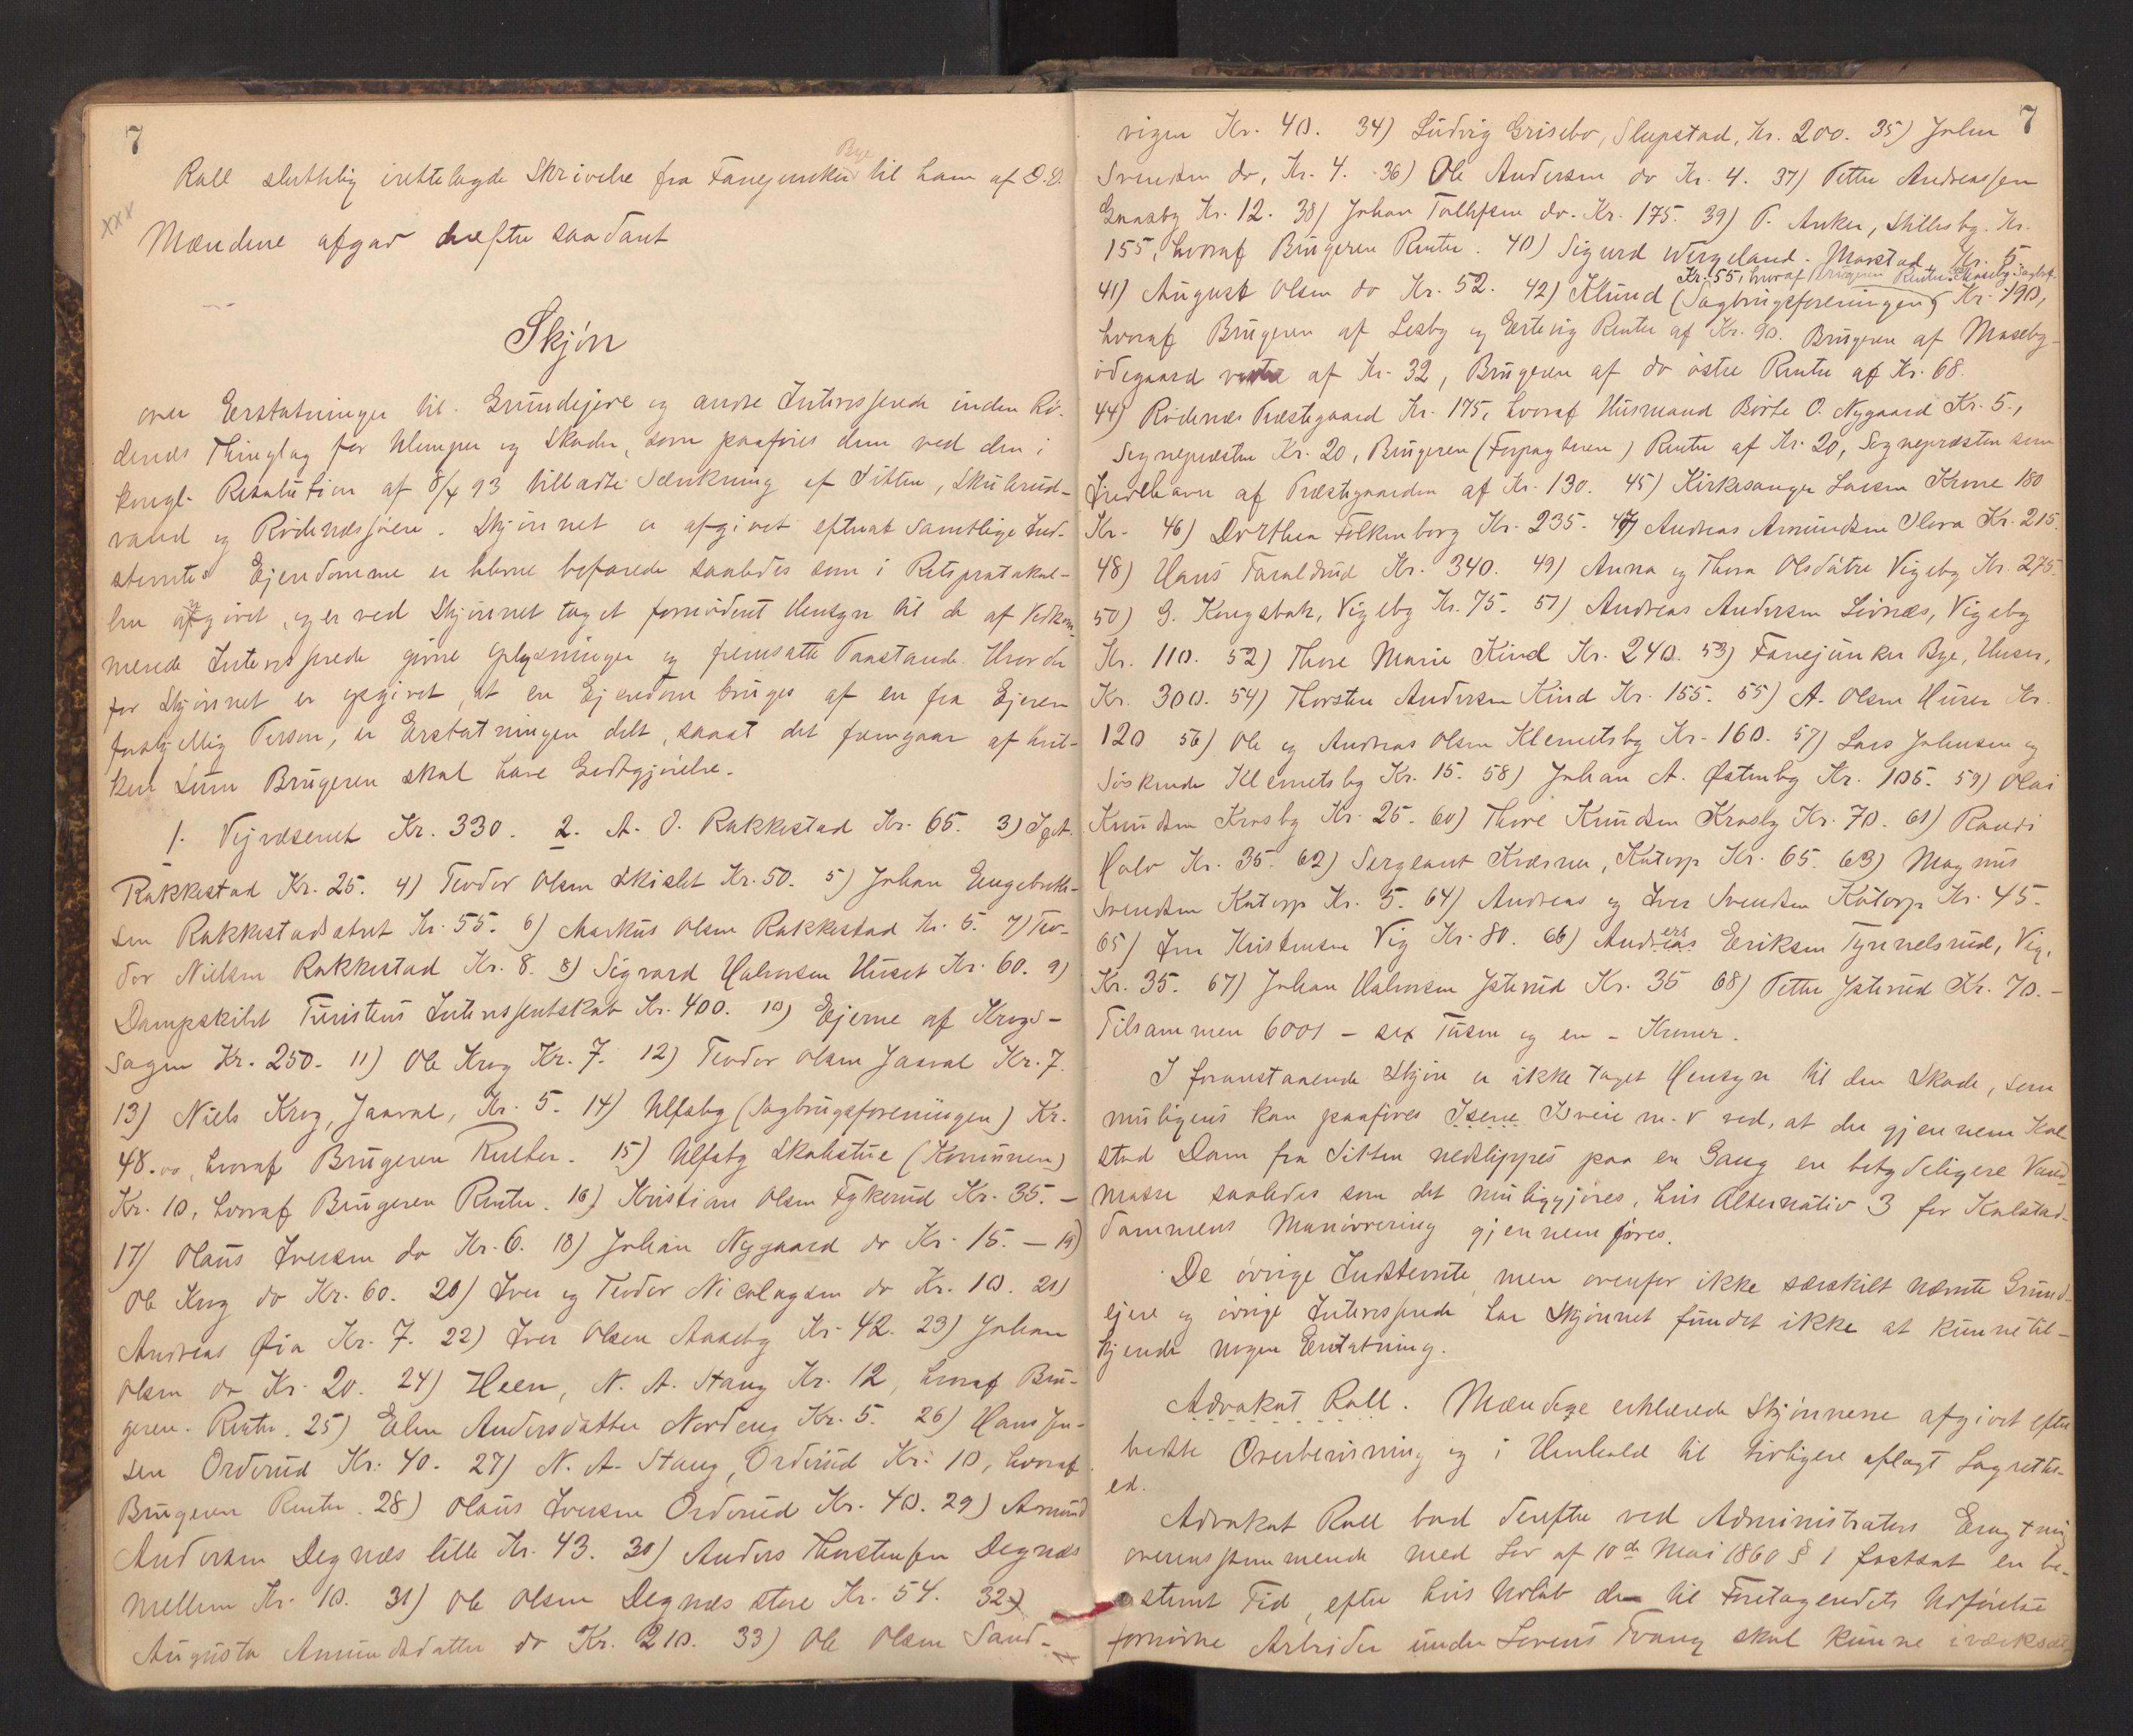 7
Bye
Roll sluttelig irettelagde Skrivelse fra Fanejunker til ham af D.D.
xxx
Mændene afgav derefter saadant
Skjön
over Erstatninger til Grundejere og andre Interesserede inden Rö-
denæs Thinglag for Ulemper og Skader, som paaföres dem ved den i
kongl. Resolution af 8/4 93 tilladte Sænkning af Sitten, Skulerud-
vand og Rödenæssjöen. Skjönnet er afgivet efterat samtlige Ind-
stevntes Ejendomme er blevne befarede saaledes som i Retsprotokol-
len afgivet, og er ved Skjönnet taget fornödent Hensyn til de af Vedkom-
mende Interesserede givne Oplysninger og fremsatte Paastande. Hvor der
for Skjönnet er opgivet, at en Ejendom bruges af en fra Ejeren
forskjellig Person, er Erstatningen delt, saaat det fremgaar af hvil-
ken Sum Brugeren skal have Godtgjörelse.
1. Vejvæsenet Kr. 330. 2. A. O. Rakkestad Kr. 65. 3) Sgt.
Rakkestad Kr. 25. 4) Teodor Olsen Skislet Kr. 50. 5) Johan Engebrett-
sen Rakkestadsætret Kr. 55. 6) Markus Olsen Rakkestad Kr. 5. 7) Teo-
dor Nielsen Rakkestad Kr. 8. 8) Sigvard Halvorsen Huset Kr. 60. 9)
Dampskibet Turistens Interessentskab Kr. 400. 10) Ejerne af Krogs-
sagen Kr. 250. 11) Ole Krog Kr. 7. 12) Teodor Olsen Jaaval Kr. 7.
13) Niels Krog, Jaaval, Kr. 5. 14) Ulfsby (Sagbrugsforeningen) Kr.
48.00, hvoraf Brugeren Renter. 15) Ulfsby Skolestue (Kommunen)
Kr. 10, hvoraf Brugeren Renter. 16) Kristian Olsen Fykerud Kr. 35. –
17) Olaus Iversen do Kr. 6. 18) Johan Nygaard do Kr. 15. – 19)
Ole Krog do Kr. 60. 20) Iver og Teodor Nicolaysen do Kr. 10. 21)
Andreas Öia Kr. 7. 22) Iver Olsen Aaseby Kr. 42. 23) Johan
Olsen do Kr. 20. 24) Heen, N. A. Stang Kr. 12, hvoraf Bru-
geren Renter. 25) Elen Andersdatter Nordeng Kr. 5. 26) Hans Jen-
sen Orderud Kr. 40. 27) N. A. Stang, Orderud Kr. 10, hvoraf
Brugeren Renter. 28) Olaus Iversen Orderud Kr. 40. 29) Amund
Andersen Degnæs lille Kr. 43. 30) Anders Thorstensen Degnæs
mellem Kr. 10. 31) Ole Olsen Degnæs store Kr. 54. 32)
Augusta Amundsdatter do Kr. 210. 33) Ole Olsen Sand-
7
vigen Kr. 40. 34) Ludvig Grisebo, Slupstad, Kr. 200. 35) Johan
Svendsen do, Kr. 4. 36) Ole Andersen do Kr. 4. 37) Petter Andreassen
Gaasby Kr. 12. 38) Johan Tollefsen do. Kr. 175. 39) P. Anker, Stillesby. Kr.
155, hvoraf Brugeren Renter. 40) Sigurd Wergeland. Morstad Kr. 5.
Kr. 55, hvoraf Brugeren Renter.
41) August Olsen do Kr. 52. 42) Klund (Sagbrugsforeningen) Kr. 190,
hvoraf Brugeren af Lesby og Ertevig Renter af Kr. 90. Brugeren af Moseby-
ödegaard vestre af Kr. 32, Brugeren af do östre Renter af Kr. 68.
44) Rödenæs Præstegaard Kr. 175, hvoraf Husmand Börte O. Nygaard Kr. 5.,
Sognepræsten Kr. 20, Brugeren (Forpagteren) Renter af Kr. 20, Sognepræsten som
Indehaver af Præstegaarden af Kr. 130. 45) Kirkesanger Lassen Krone 180
Kr. 46) Dorthea Folkenborg Kr. 235. 47) Andreas Amundsen Slora Kr. 215.
48) Hans Faraldrud Kr. 340. 49) Anna og Thora Olsdätre Vigeby Kr. 275.
50) G. Kongsbak, Vigeby Kr. 75. 51) Andreas Andersen Livnæs, Vigeby
Kr. 110. 52) Thore Marie Kind Kr. 240. 53) Fanejunker Bye, Huser,
Kr. 300. 54) Thorsten Andersen Kind Kr. 155. 55) A. Olsen Huser Kr.
120 56) Ole og Andreas Olsen Klemetsby Kr. 160. 57) Lars Johnsen og
Söskende Klemetsby Kr. 15. 58) Johan A. Østenby Kr. 105. 59) Olai
Knudsen Krosby Kr. 25. 60) Thore Knudsen Krosby Kr. 70. 61) Randi
Holo Kr. 35. 62) Sergeant Kværner, Kåtorp Kr. 65. 63) Magnus
Svendsen Kåtorp Kr. 5. 64) Andreas og Iver Svendsen Kåtorp Kr. 45.
65) Jens Kristensen Vig Kr. 80. 66) Anders Eriksen Tynnelsrud, Vig,
Kr. 35. 67) Johan Halvorsen Ysterud Kr. 35 68) Petter Ysterud Kr. 70. –
Tilsammen 6001 – sex Tusen og en – Kroner.
I foranstaaende Skjön er ikke taget Hensyn til den Skade, som
muligens kan paaföres Isene Isveie m. v ved, at der gjennem Kol-
stad Dam fra Sitten nedslippes paa en Gang en betydeligere Vand-
masse saaledes som det muliggjöres, hvis Alternativ 3 for Kolstad-
dammens Manövrering gjennemföres.
De övrige Indstevnte, men ovenfor ikke særskilt nævnte Grund-
ejere og övrige Interesserede har Skjönnet fundet ikke at kunne til-
kjende nogen Erstatning.
Advokat Roll. Mændene erklærede Skjönnene afgivet efter
bedste Overbevisning og i Henhold til tidligere aflagt Lagrettes-
ed.
Advokat Roll bad derefter ved Administrators
overensstemmende med Lov af 10de Mai 1860 § 1 fastsat en be-
stemt Tid, efter hvis Udlöb de til Foretagendets Udförelse
fornödne Arbeider under Lovens Tvang skal kunne iværksæt